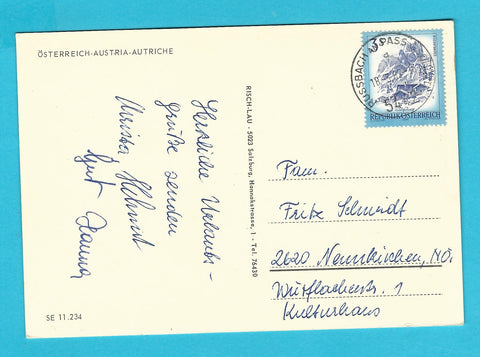 ÖSTERREICH-AUSTRIA-AUTRICHE
Herzliche Urlaubs-
grüße senden
Christa Helmut
Gert Hanna
SE 11.234
RISCH-LAU · 5023 Salzburg, Hannakstrasse, 1 - Tel. 76430
RUSSBACH PASS
REPUBLIK ÖSTERREICH
Fam.
Fritz Schmidt
2620 Neunkirchen, NÖ.
Würflacherstr. 1
Kulturhaus